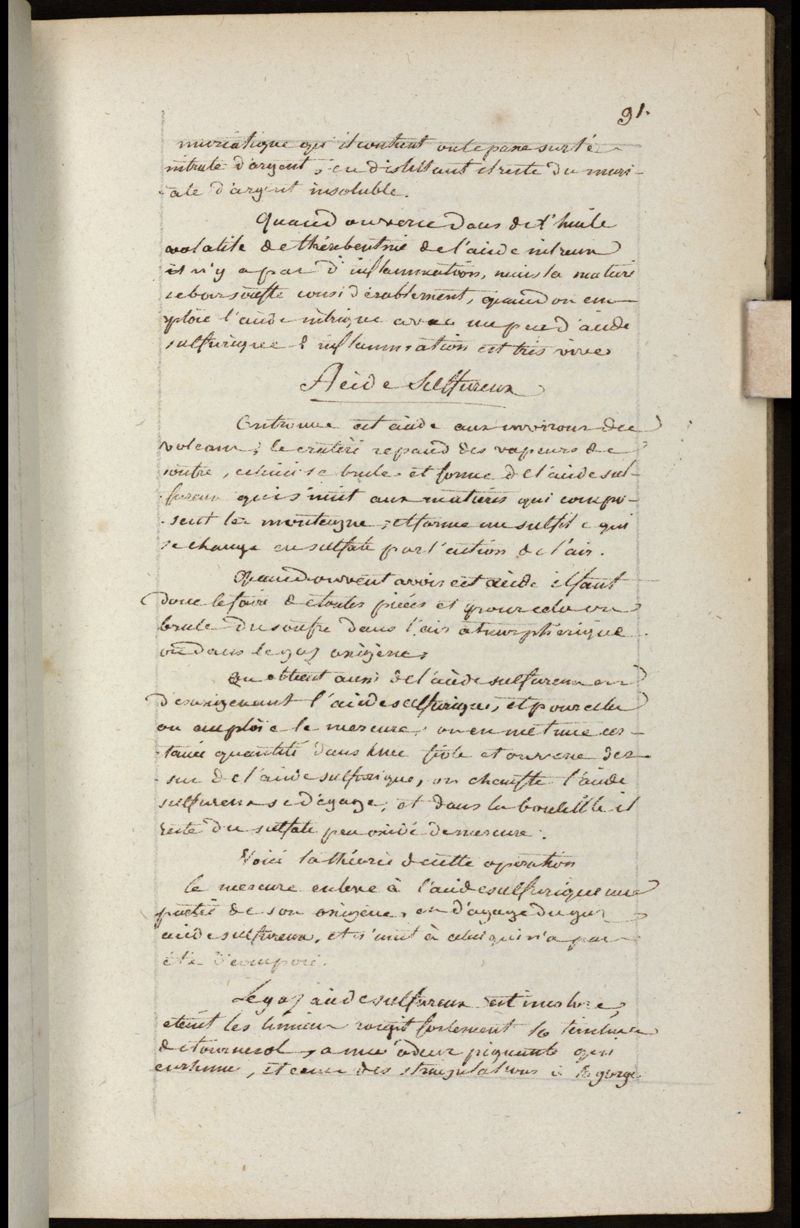 91.
muriatique qu'il contient on le passe sur le
nitrate d'argent, en distillant il reste du muri-
ate d'argent insoluble.
Quand on verse dans de l'huile
volatile de thérébentine de l'acide nitreux
il n'y a pas d'inflammation, mais la matiere
se boursoufle considérablement, quand on em-
ploie l'acide nitrique avec un peu d'acide
sulfurique l'inflammation est très vive
Acide Sulfureux
On trouve cet acide aux environs des
volcans; le cratère repand des vapeurs de
soufre, celui ci se brule et forme de l'acide sul-
fureux qui s'unit aux matieres qui compo-
sent la montagne, et forme un sulfite qui
se change en sulfate par l'action de l'air.
Quand on veut avoir cet acide il faut
donc le faire de toutes pièces et pour cela on
brule du soufre dans l'air atmosphérique
ou dans le gaz oxigène.
On obtient aussi de l'acide sulfureux en
désoxigenant l'acide sulfurique, et pour cela
on emploie le mercure, on en met une cer-
taine quantité dans une fiole et on verse des-
sus de l'acide sulfurique, on chauffe l'acide
sulfureux se dégage, et dans la bouteille il
reste du sulfate peu oxidé de mercure.
Voici la théorie de cette opération
le mercure enleve à l'acide sulfurique une
partie de son oxigène, en dégage du gaz
acide sulfureux, et s'unit à celui qui n'a pas
été décomposé.
Le gaz acide sulfureux est incolore,
éteint les lumieres rougit fortement la teinture
de tournesol, a une odeur piquante qui
enrhume, et cause des strangulations à la gorge